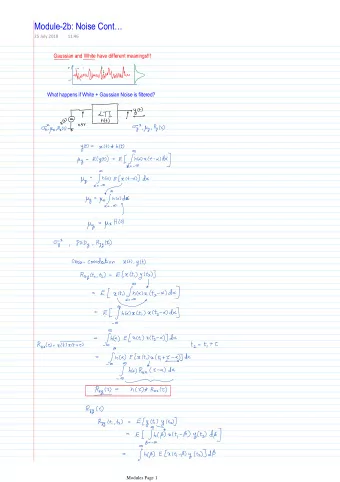 Module-2b: Noise Cont…
25 July 2018 11:45
Gaussian and White have different meanings!!!
What happens if White + Gaussian Noise is filtered?
LTI
h(t)
y(t)
x(t)
σy², μy, Ry(t)
y(t) = x(t) * h(t)
μy = E(y(t)) = E[∫_{-∞}^{∞} h(α) x(t-α) dα]
μy = ∫_{-∞}^{∞} h(α) E[x(t-α)] dα
μy = μx ∫_{-∞}^{∞} h(α) dα
μy = μx H(0)
σy², Ryy(τ)
cross-correlation x(t), y(t)
Rxy(t1, t2) = E[x(t1) y(t2)]
= E[x(t1) ∫_{-∞}^{∞} h(α) x(t2-α) dα]
= E[∫_{-∞}^{∞} h(α) x(t1) x(t2-α) dα]
= ∫_{-∞}^{∞} h(α) E[x(t1) x(t2-α)] dα
Rxx(τ) = x(t) x(t+τ)
t2 = t1 + τ
= ∫_{-∞}^{∞} h(α) E[x(t1) x(t1+τ-α)] dα
∫_{-∞}^{∞} h(α) Rxx(τ-α) dα
Rxy(τ) = h(τ) * Rxx(τ)
Ryy(τ)
Ryy(t1, t2) = E[y(t1) y(t2)]
= E[∫_{-∞}^{∞} h(β) x(t1-β) y(t2) dβ]
= ∫_{-∞}^{∞} h(β) E[x(t1-β) y(t2)] dβ
Modules Page 1